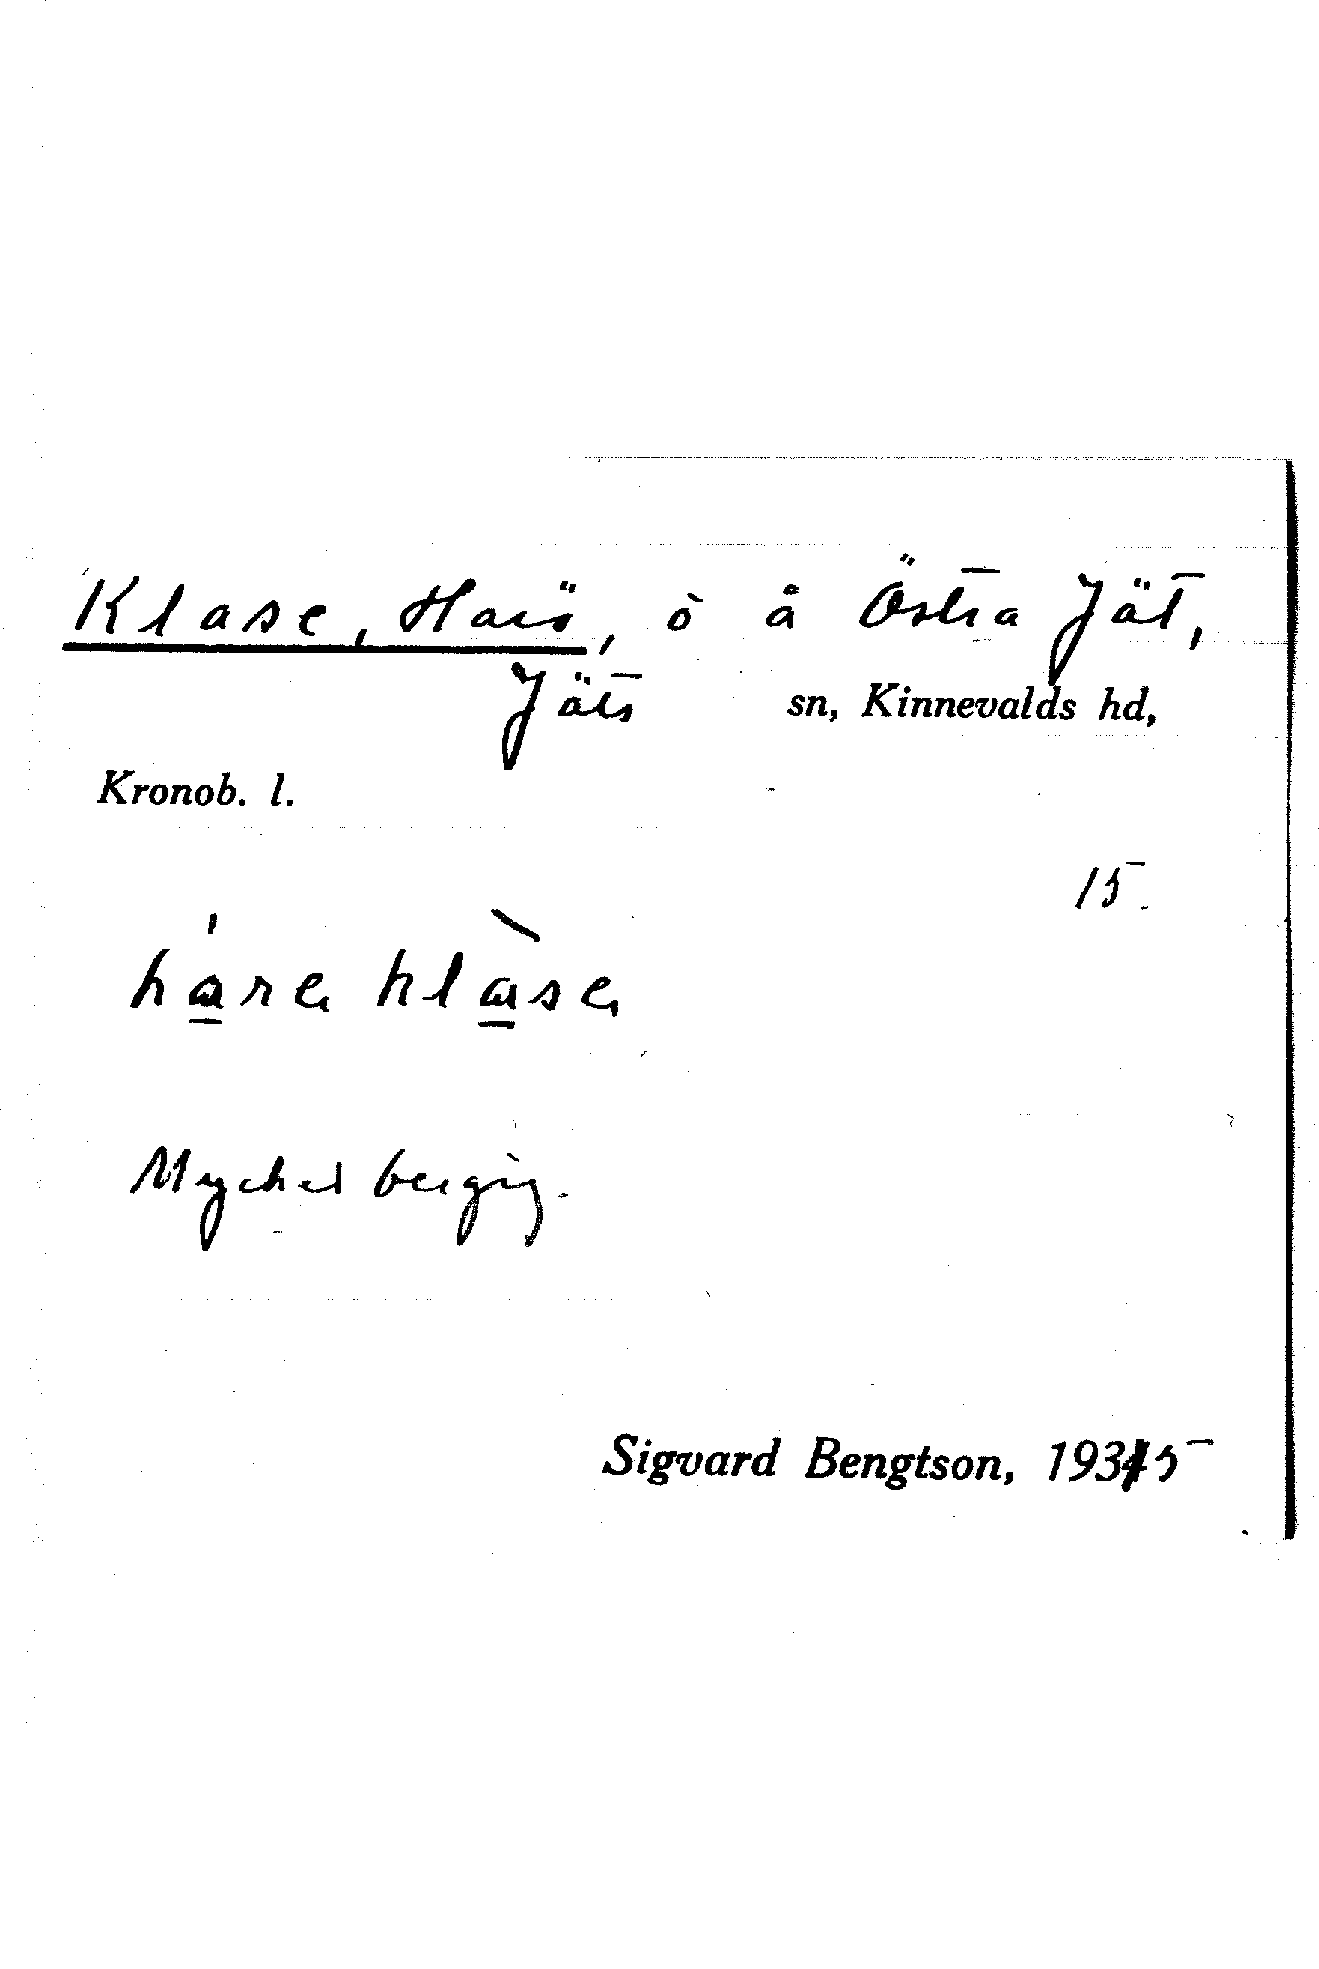 Klase, Harö, ö å Östra Jät,
Jäts sn, Kinnevalds hd,
Kronob. l.
15
Mycket bergig.
Sigvard Bengtson, 1935